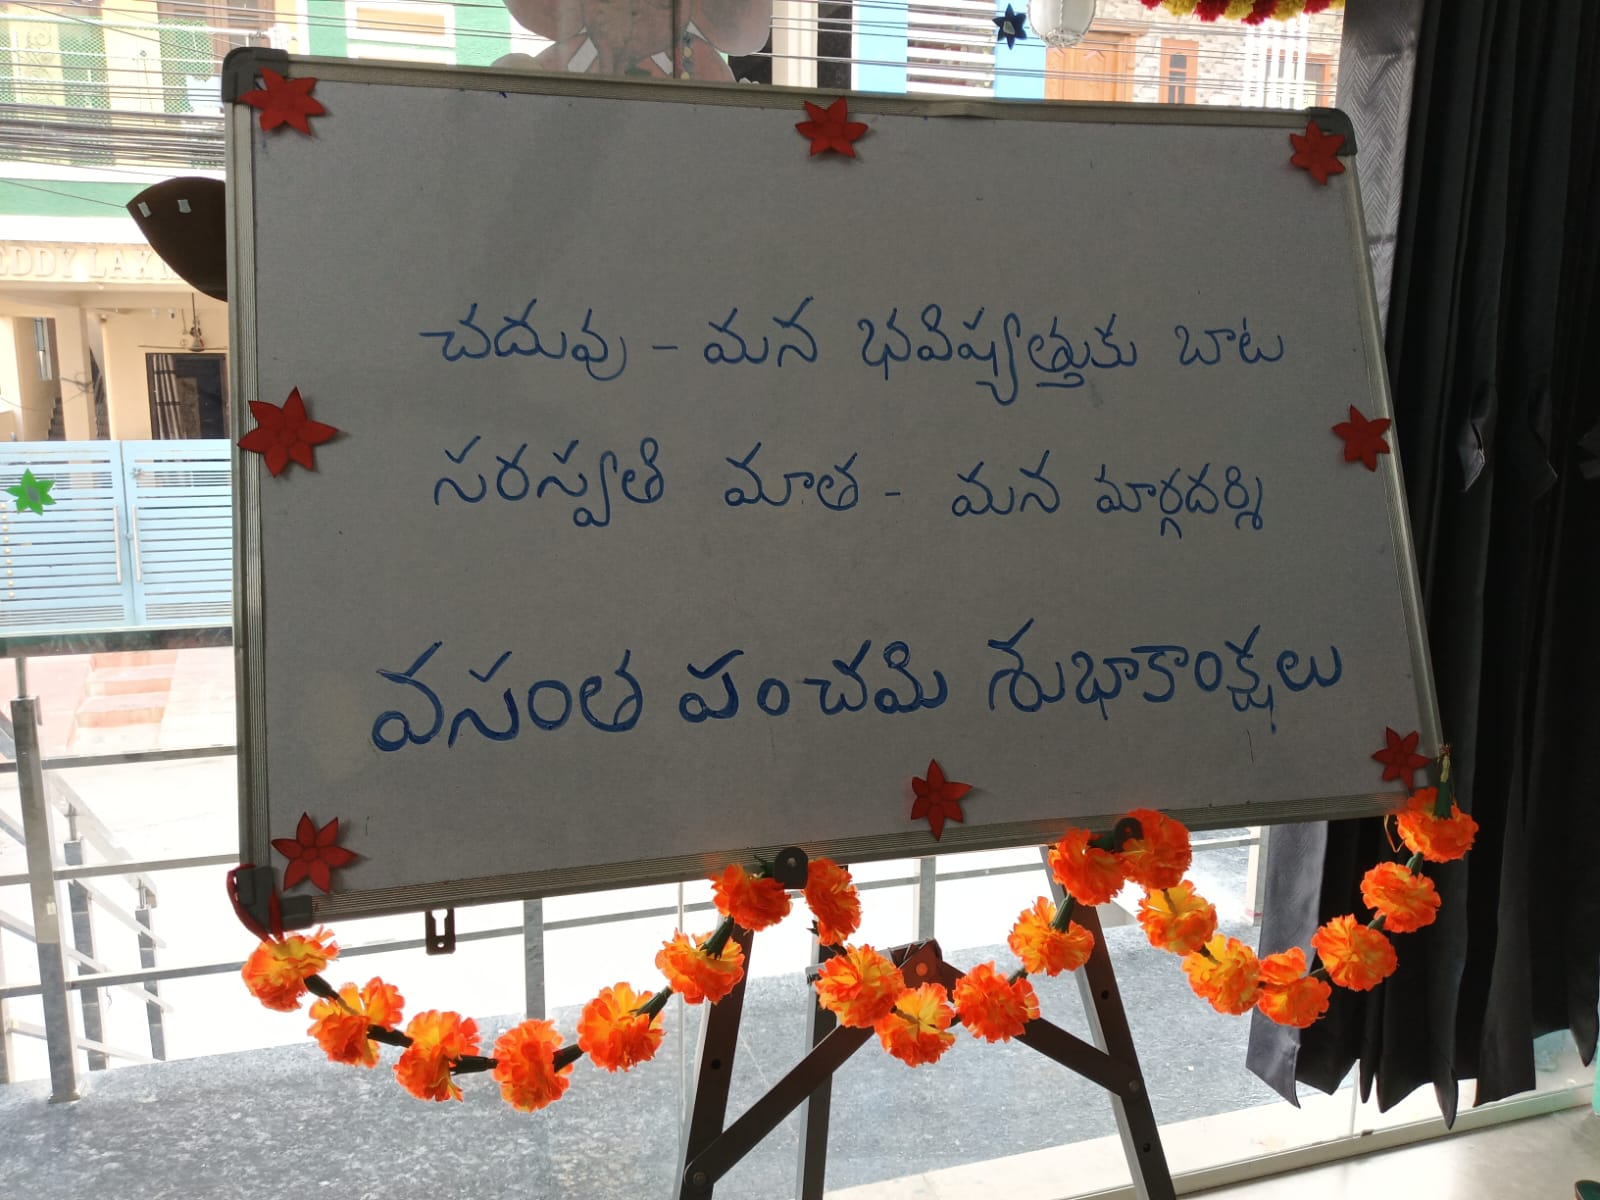 EDDY LAX
చదువు - మన భవిష్యత్తుకు బాట
సరస్వతి మాత - మన మార్గదర్శి
వసంత పంచమి శుభాకాంక్షలు